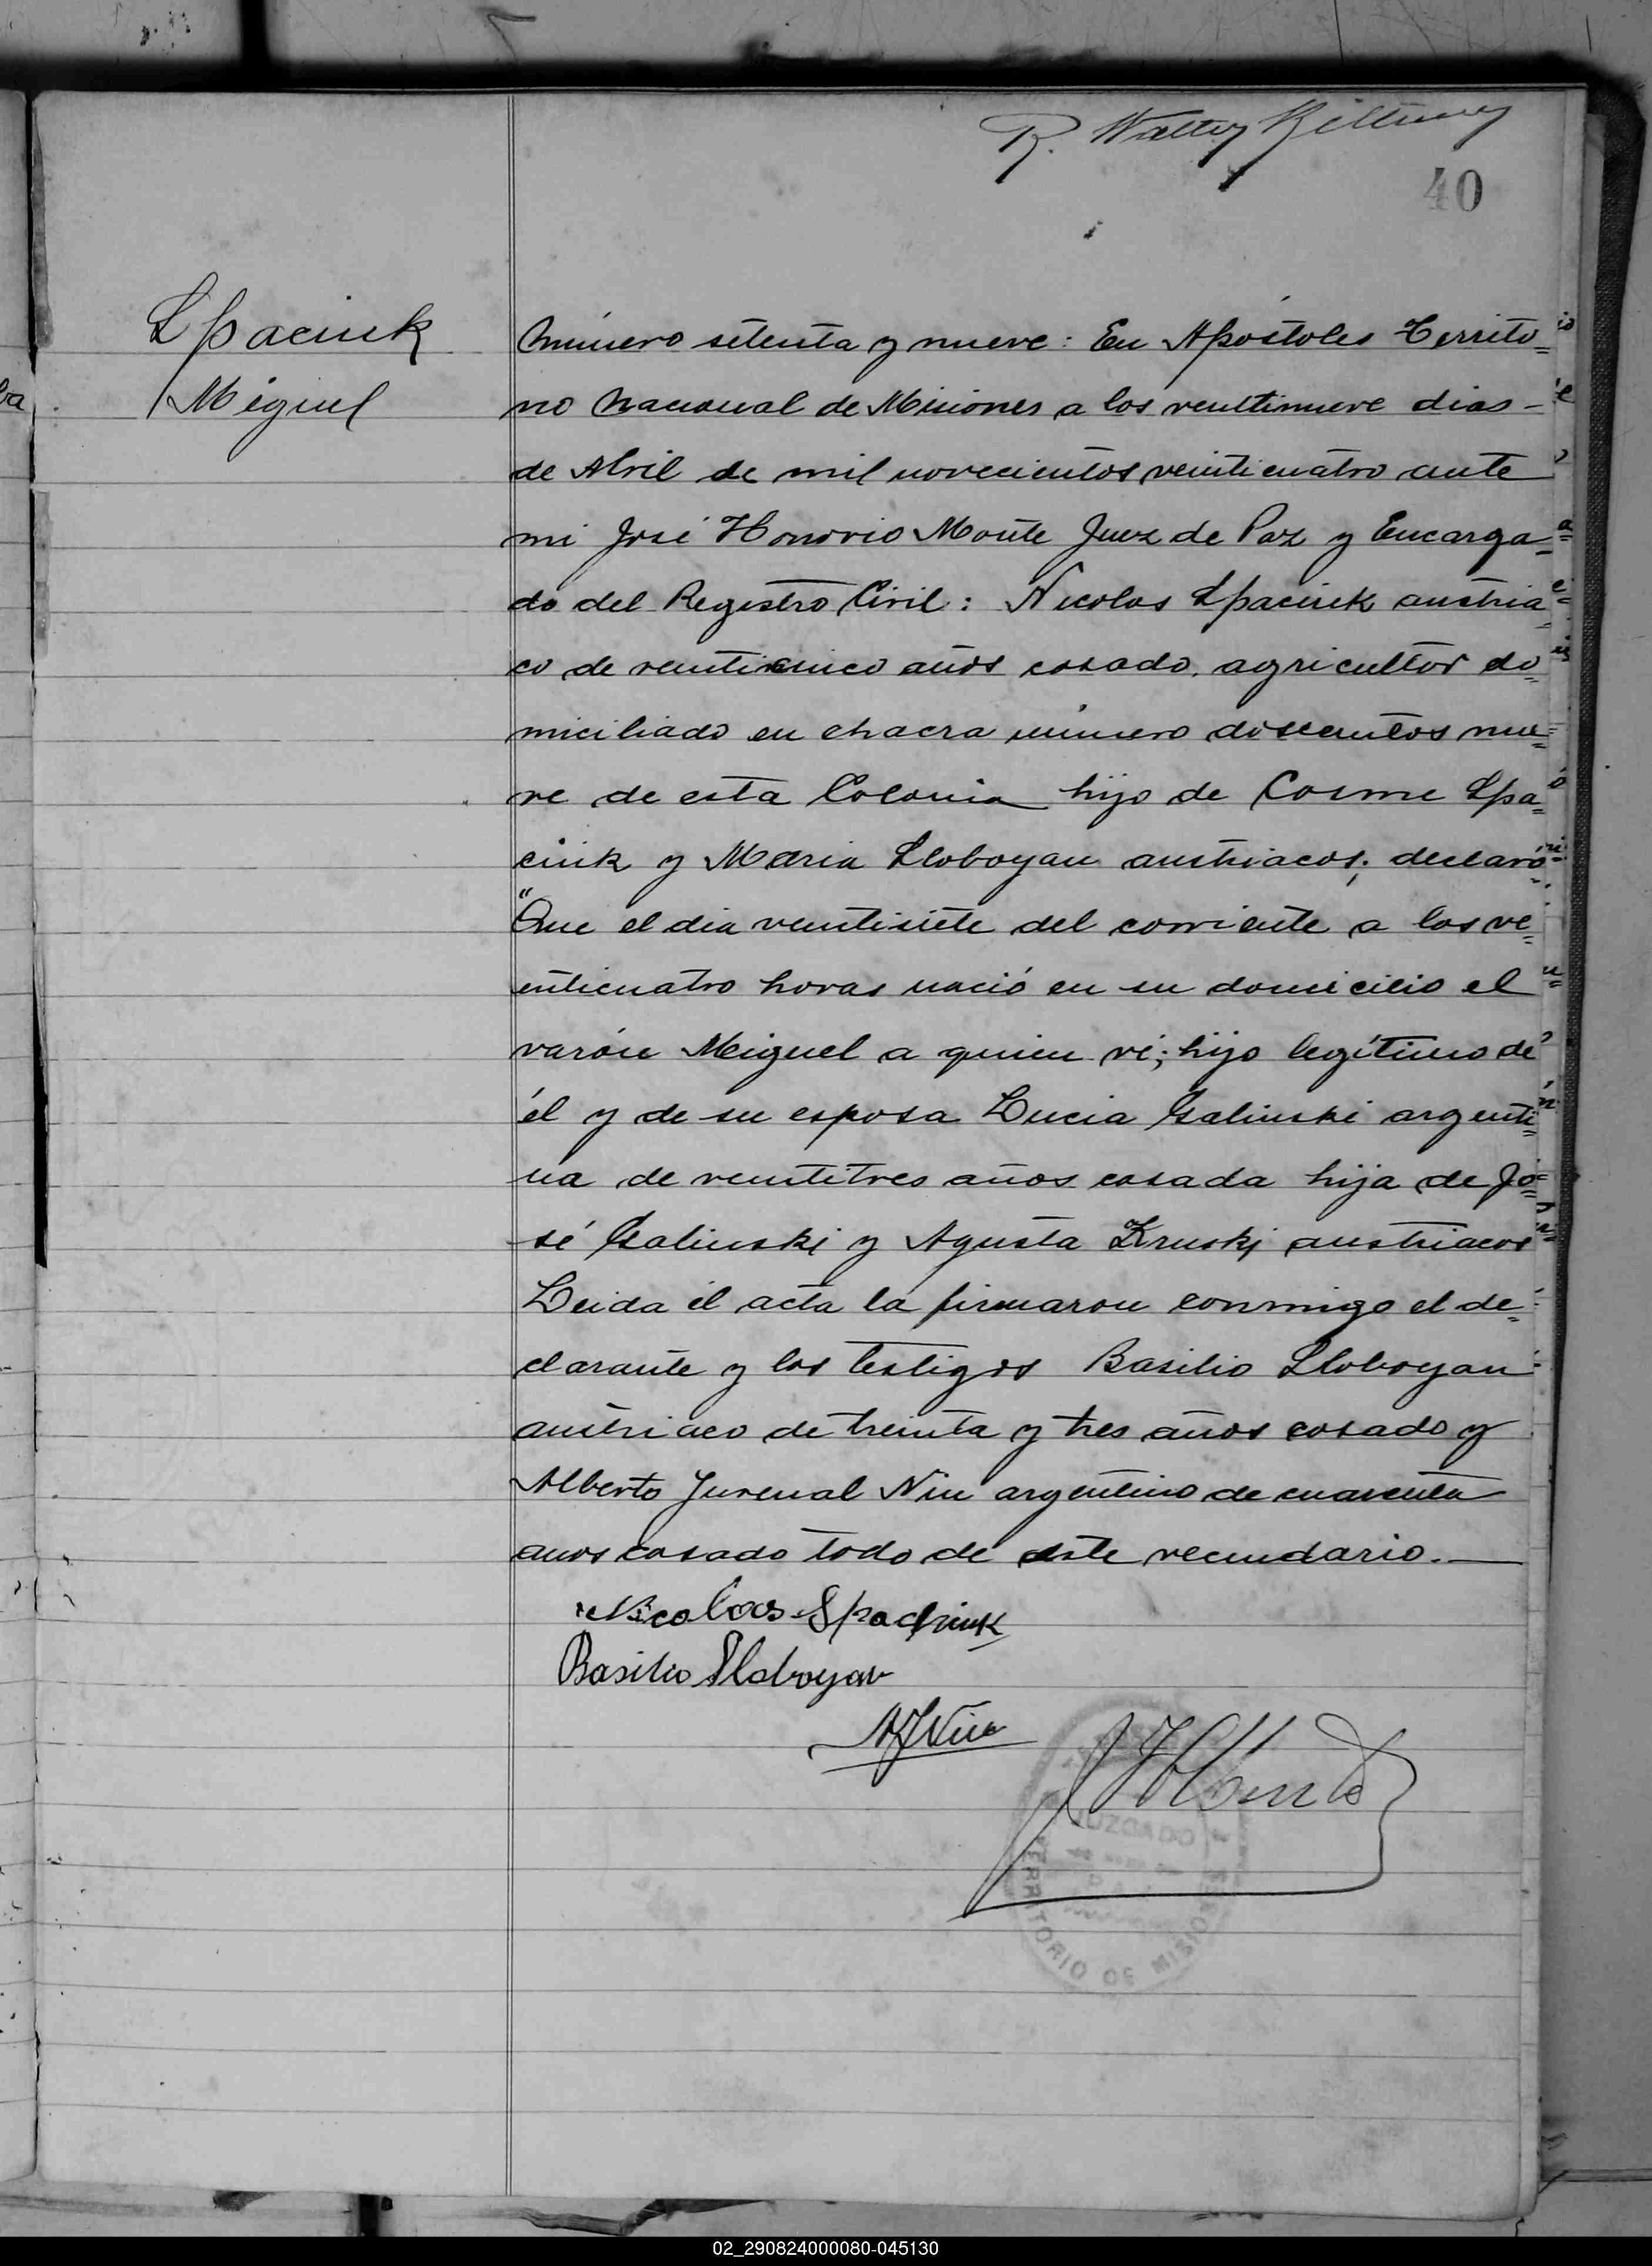 R. Walter
40
Spaciuk
Miguel
Número setenta y nueve: En Apóstoles Territo=
rio Nacional de Misiones a los veintinueve dias -
de Abril de mil novecientos veinticuatro ante
mi José Honorio Monte Juez de Paz y Encarga=
do del Registro Civil: Nicolas Spaciuk austria=
co de veinticinco años casado, agricultor do=
miciliado en chacra número doscientos nue=
ve de esta Colonia hijo de Cosme Spa=
ciuk y Maria Sloboyan austriacos; declaró:
"Que el dia veintisiete del corriente a las ve=
enticuatro horas nació en su domicilio el
varón Miguel a quien vi; hijo legítimo de
él y de su esposa Lucia Galinski argenti=
na de veintitres años casada hija de Jo=
sé Galinski y Agusta Kruski austriacos
Leida el acta la firmaron conmigo el de=
clarante y los testigos Basilio Sloboyan
austriaco de treinta y tres años casado y
Alberto Juvenal Niu argentino de cuarenta
anos casado todo de este vecindario.—
Nicolas Spachiuk
Basilio Sloboyan
AJNiu
JHMonte
JUZGADO
TERRITORIO DE MISIONES
02_290824000080-045130